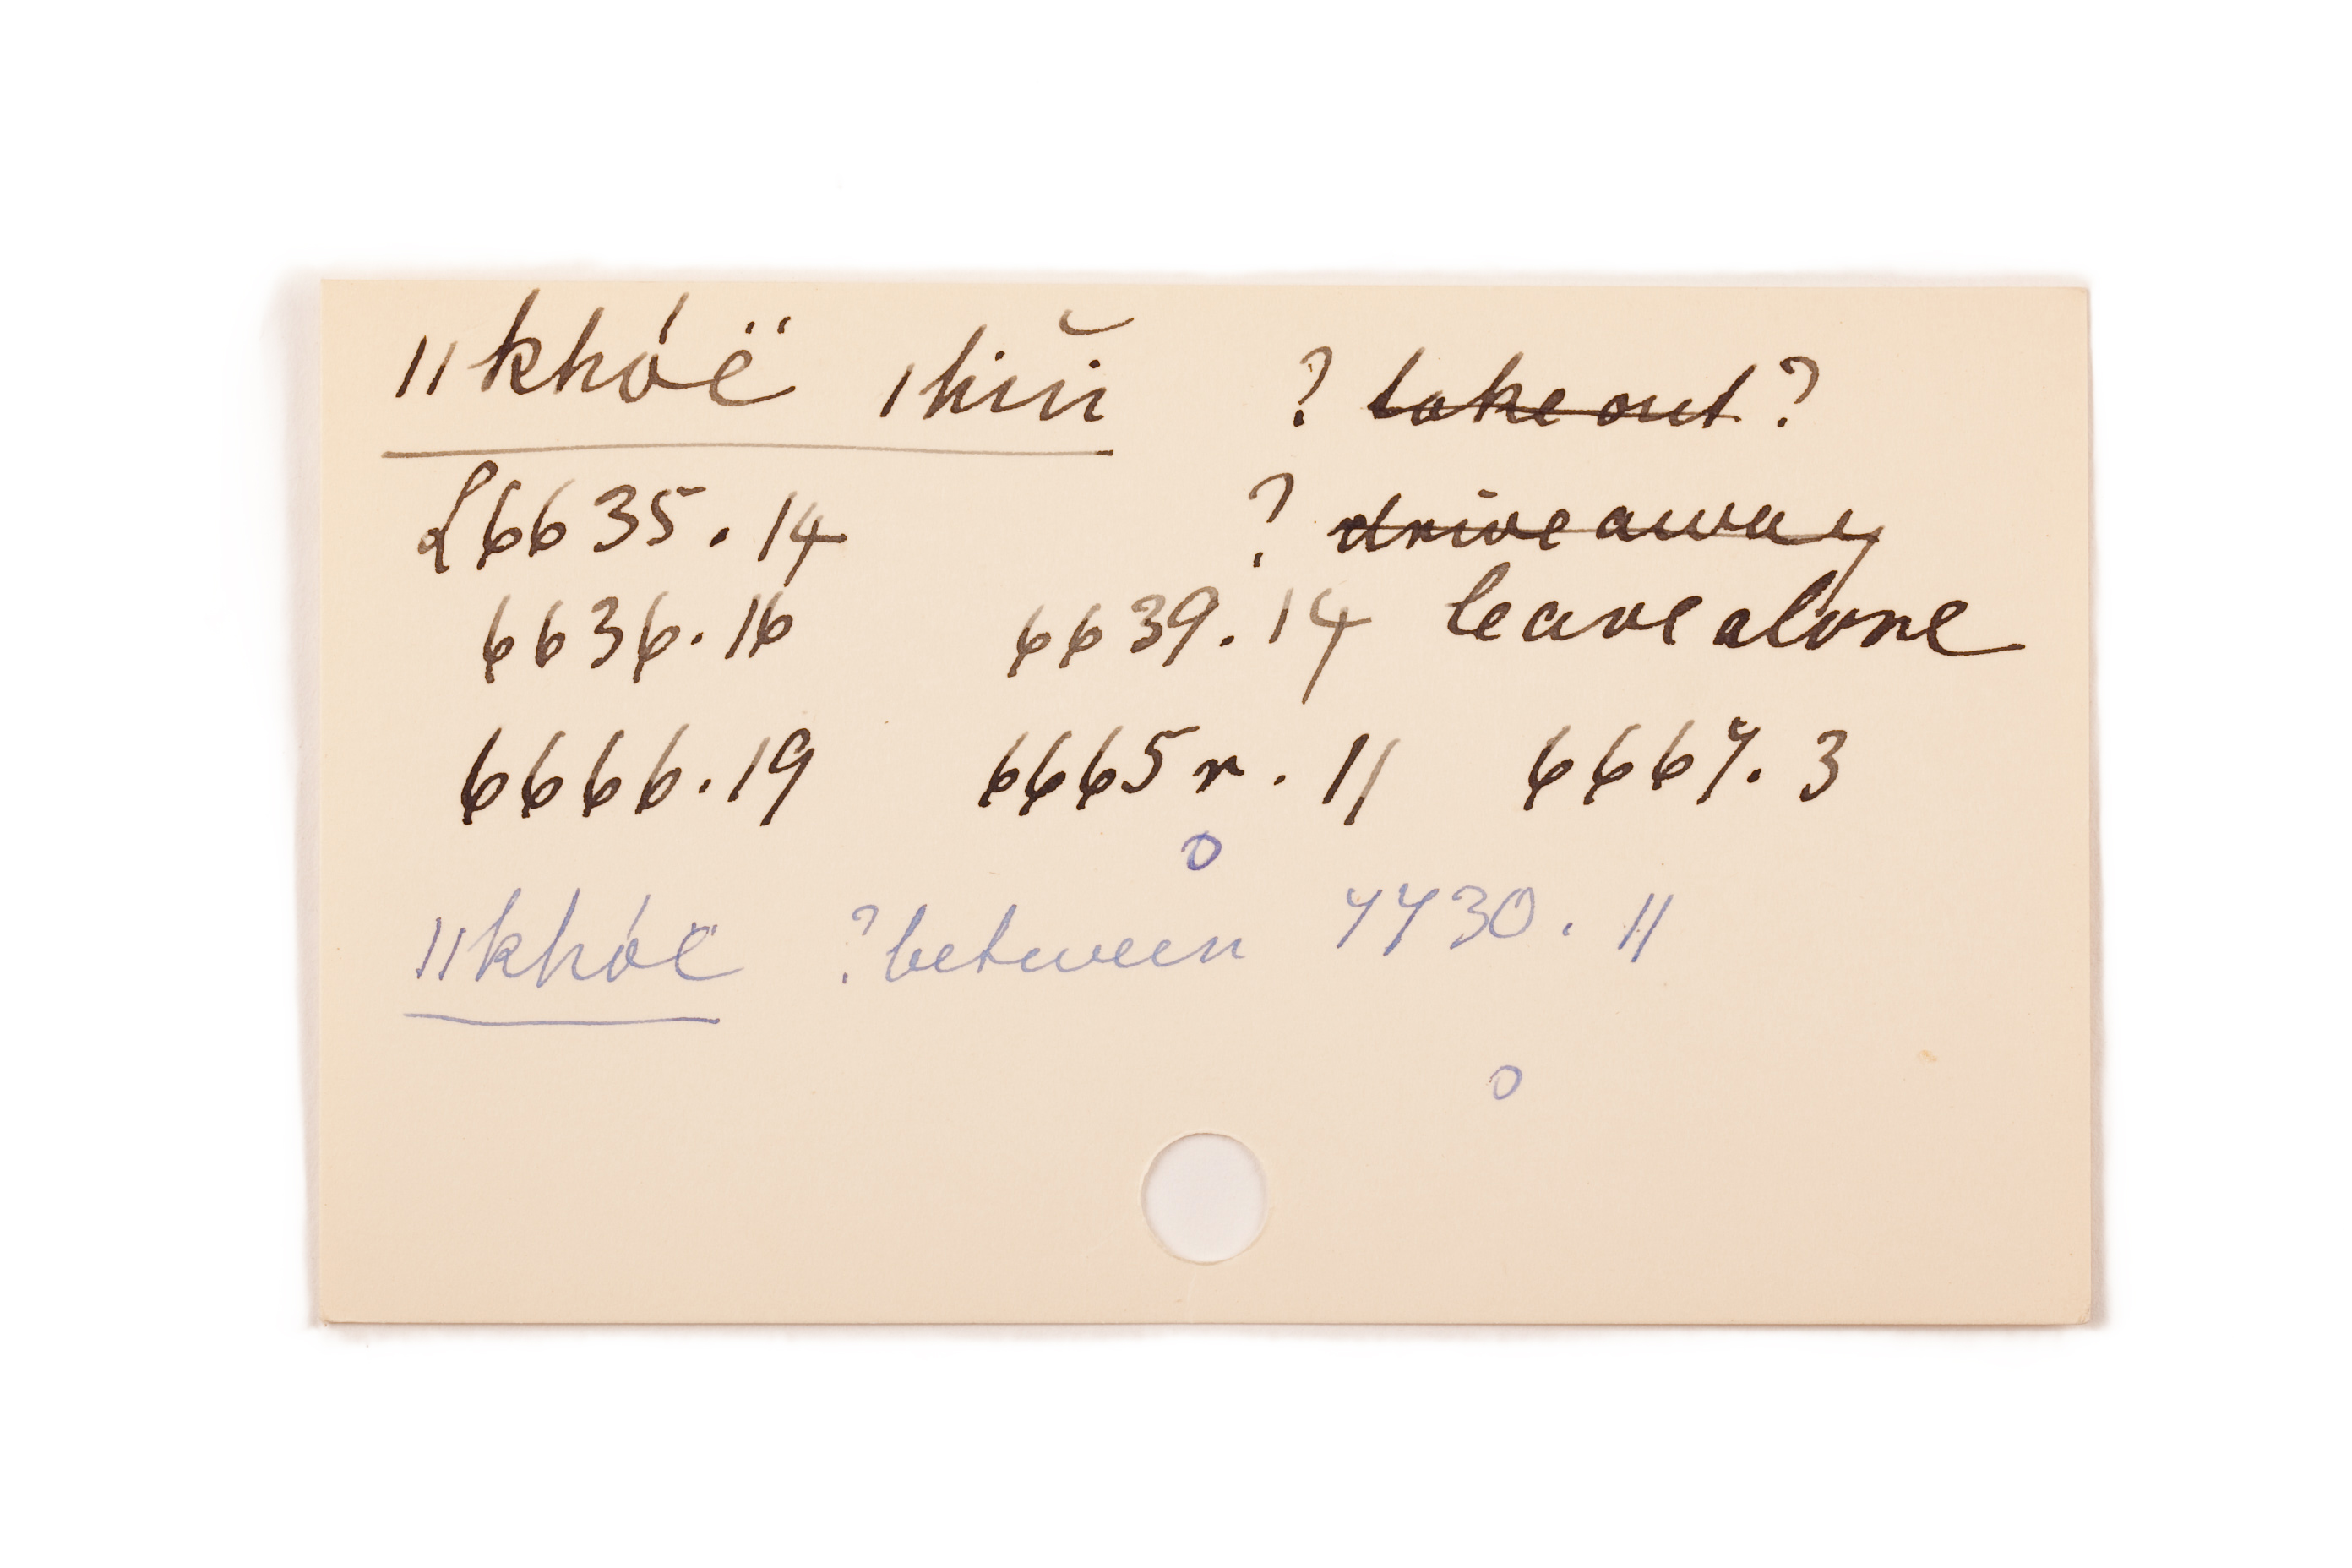 ǁkhóë ǀhiı̆i ? ~~take out~~?
L6635.14 ? ~~drive away~~
6636.16 6639.14 leave alone
6666.19 6665r.11 6667.3
o
ǁkhóë ?between 7730.11
o